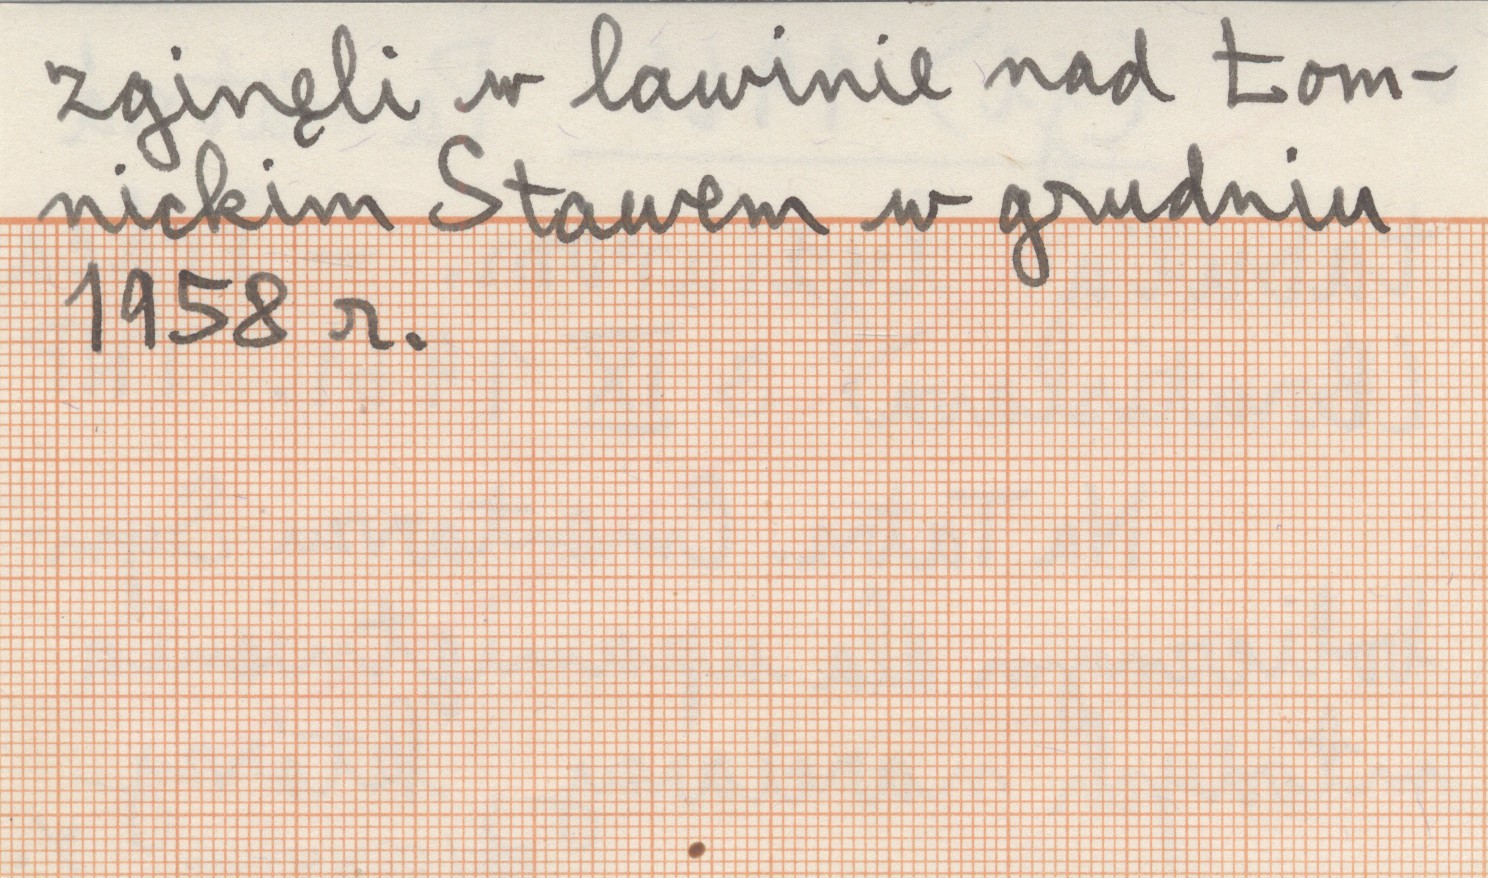 zginęli w lawinie nad Łom-
nickim Stawem w grudniu
1958 r.